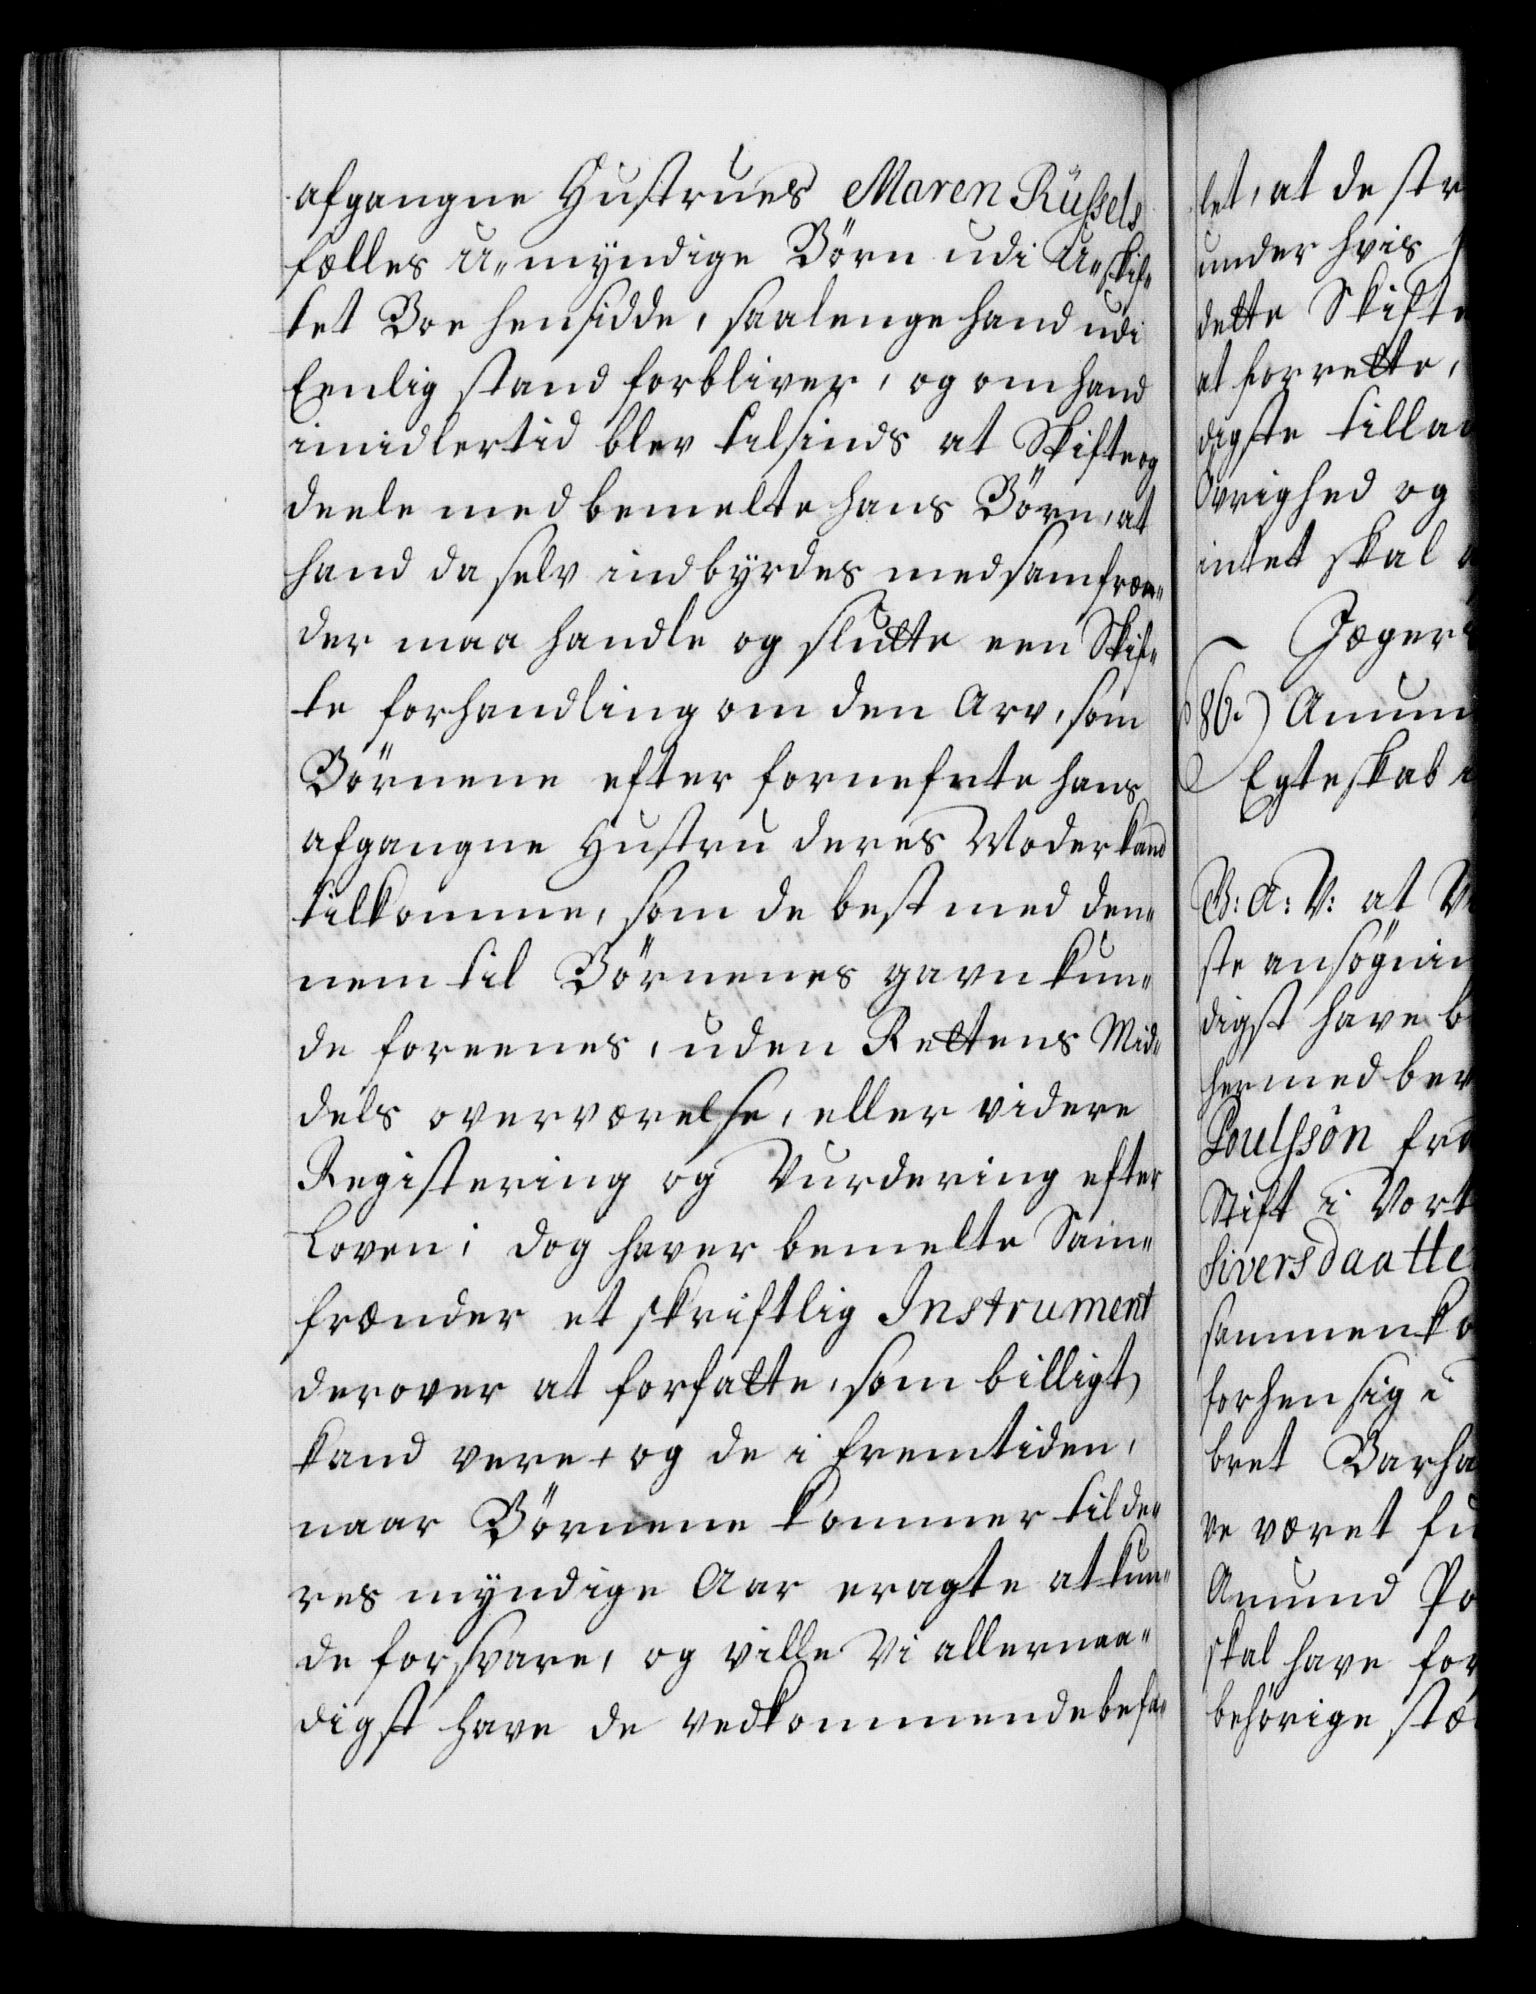 afgangne Hustrues Maren Rüssels
fælles u„myndige Börn udi U„skif„
tet Boe hensidde, saalenge hand udi
Eenlig stand forbliver, og om hand
imidlertid blev tilsinds at Skifte og
deele med bemelte hans Börn, at
hand da selv indbyrdes med samfræn„
der maa handle og slutte een Skif„
te forhandling om den Arv, som
Börnene efter fornefnte hans
afgangne Hustru deres Moder kand
tilkomme, som de best med den„
nem til Börnenes gavn kun„
de foreenes, uden Rettens Mid„
dels overværelse, eller videre
Registering og Vurdering efter
Loven; dog haver bemelte Sam„
frænder et skriftlig Instrument
derover at forfatte, som billigt
kand vere, og de i fremtiden,
naar Börnene kommer til de„
res myndige Aar eragte at kun„
de forsvare, og ville Vi allernaa„
digst have de vedkommende befa„
let, at de
under hvis
dette Skifte
at forrette,
digste
Övrighed og
intet skal
86.)
Egteskab
B: A: V: at
ste
digst have
hermed
Poulssön
Stift i
Siversdaatte
forhen sig i
bret
ve været
Amund
skal have
behörige